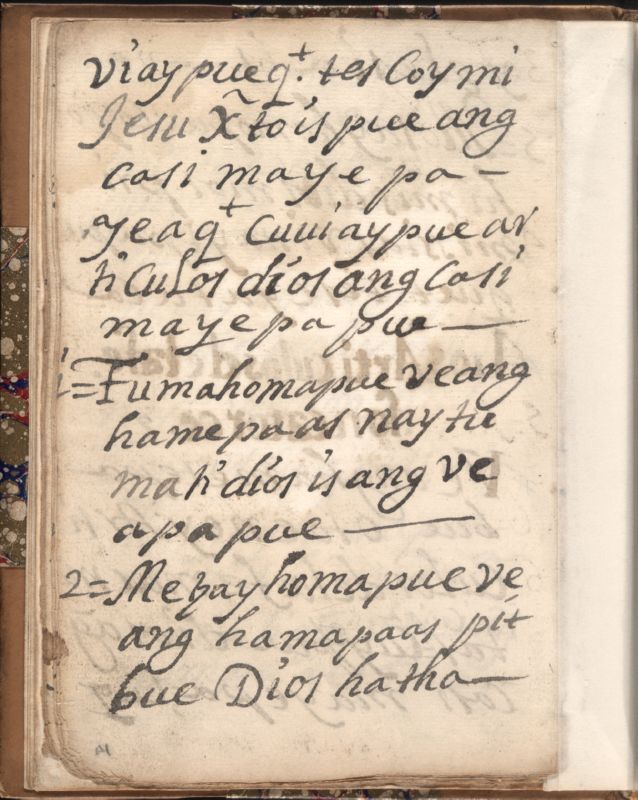 viay pue q̃.⁺ tes Coy mi
Jesu X̃to is pue ang
casi maye pa –
yea q̃⁺ Cuuiay pue ar
ticulos dios ang Casi
maye pa pue —
1 = Tumahoma pue ve ang
hamepa as nay tu
mati dios is ang ve
apa pue —
2 = Metzay homa pue ve
ang hamapa as pit
bue Dios hatha —
14